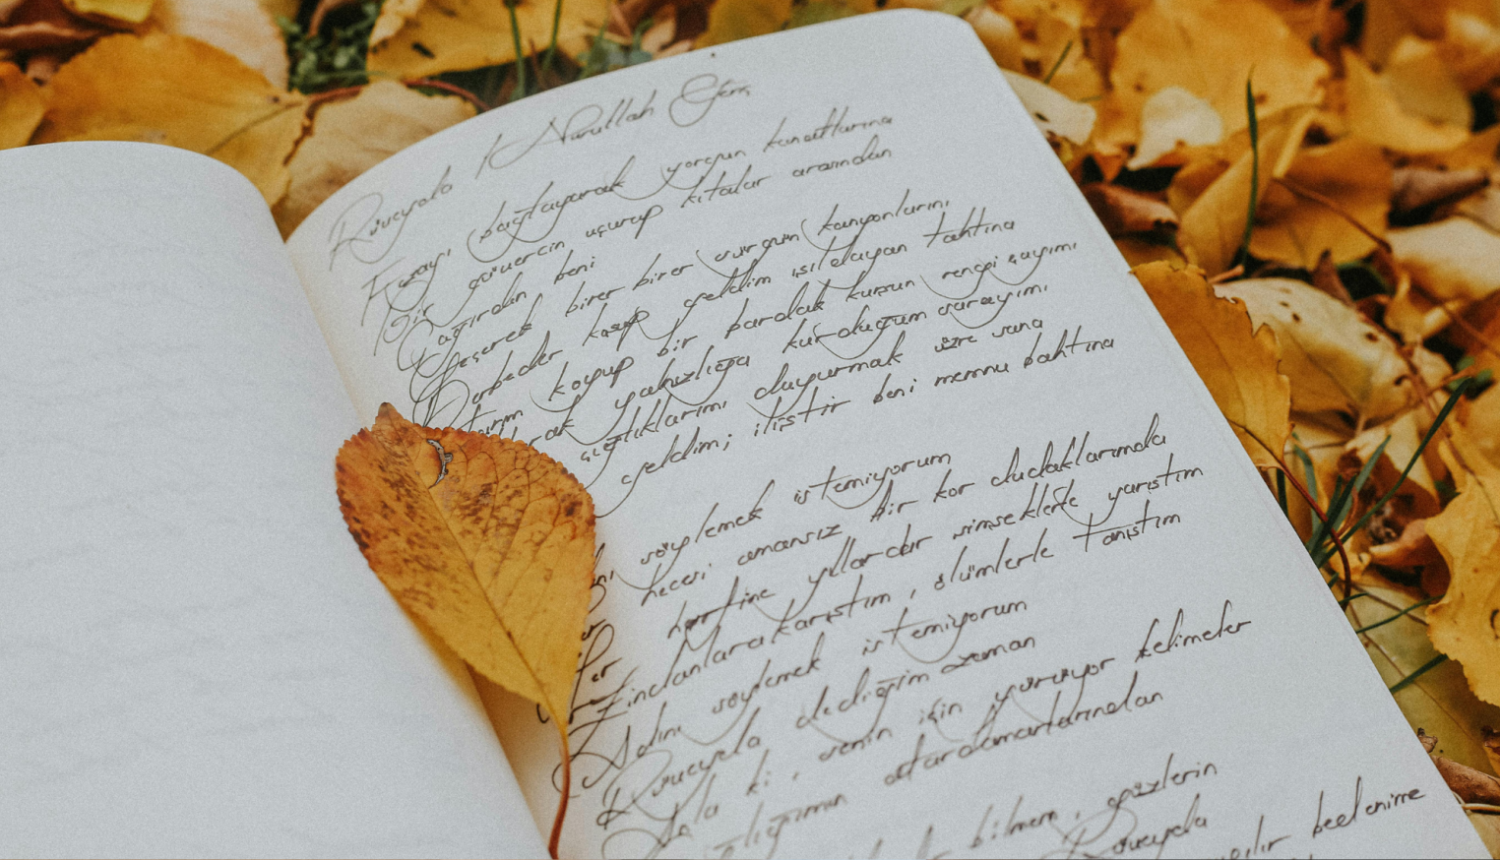 Rüveyda / Nurullah Genç
Fezayı bağlayarak yorgun kanatlarına
Bir güvercin uçurup kıtalar arasından
Çağırdın beni
Geçerek birer birer sürgün kanyonlarını
Derbeder koşup geldim ışıldayan tahtına
koyup bir bardak kurşun rengi çayımı
yalnızlığa kurduğum sarayımı
açtıklarımı duyurmak üzre sana
geldim; iliştir beni memnu bahtına
söylemek istemiyorum
hecesi amansız bir kor dudaklarımda
yıllardır şimşeklerle yarıştım
Zindanlara karıştım, ölümlerle tanıştım
Adını söylemek istemiyorum
Rüveyda dediğim zaman
ki, senin için yürüyor kelimeler
atardamarlarından
bilmem, gözlerin
Rüveyda
bedenime